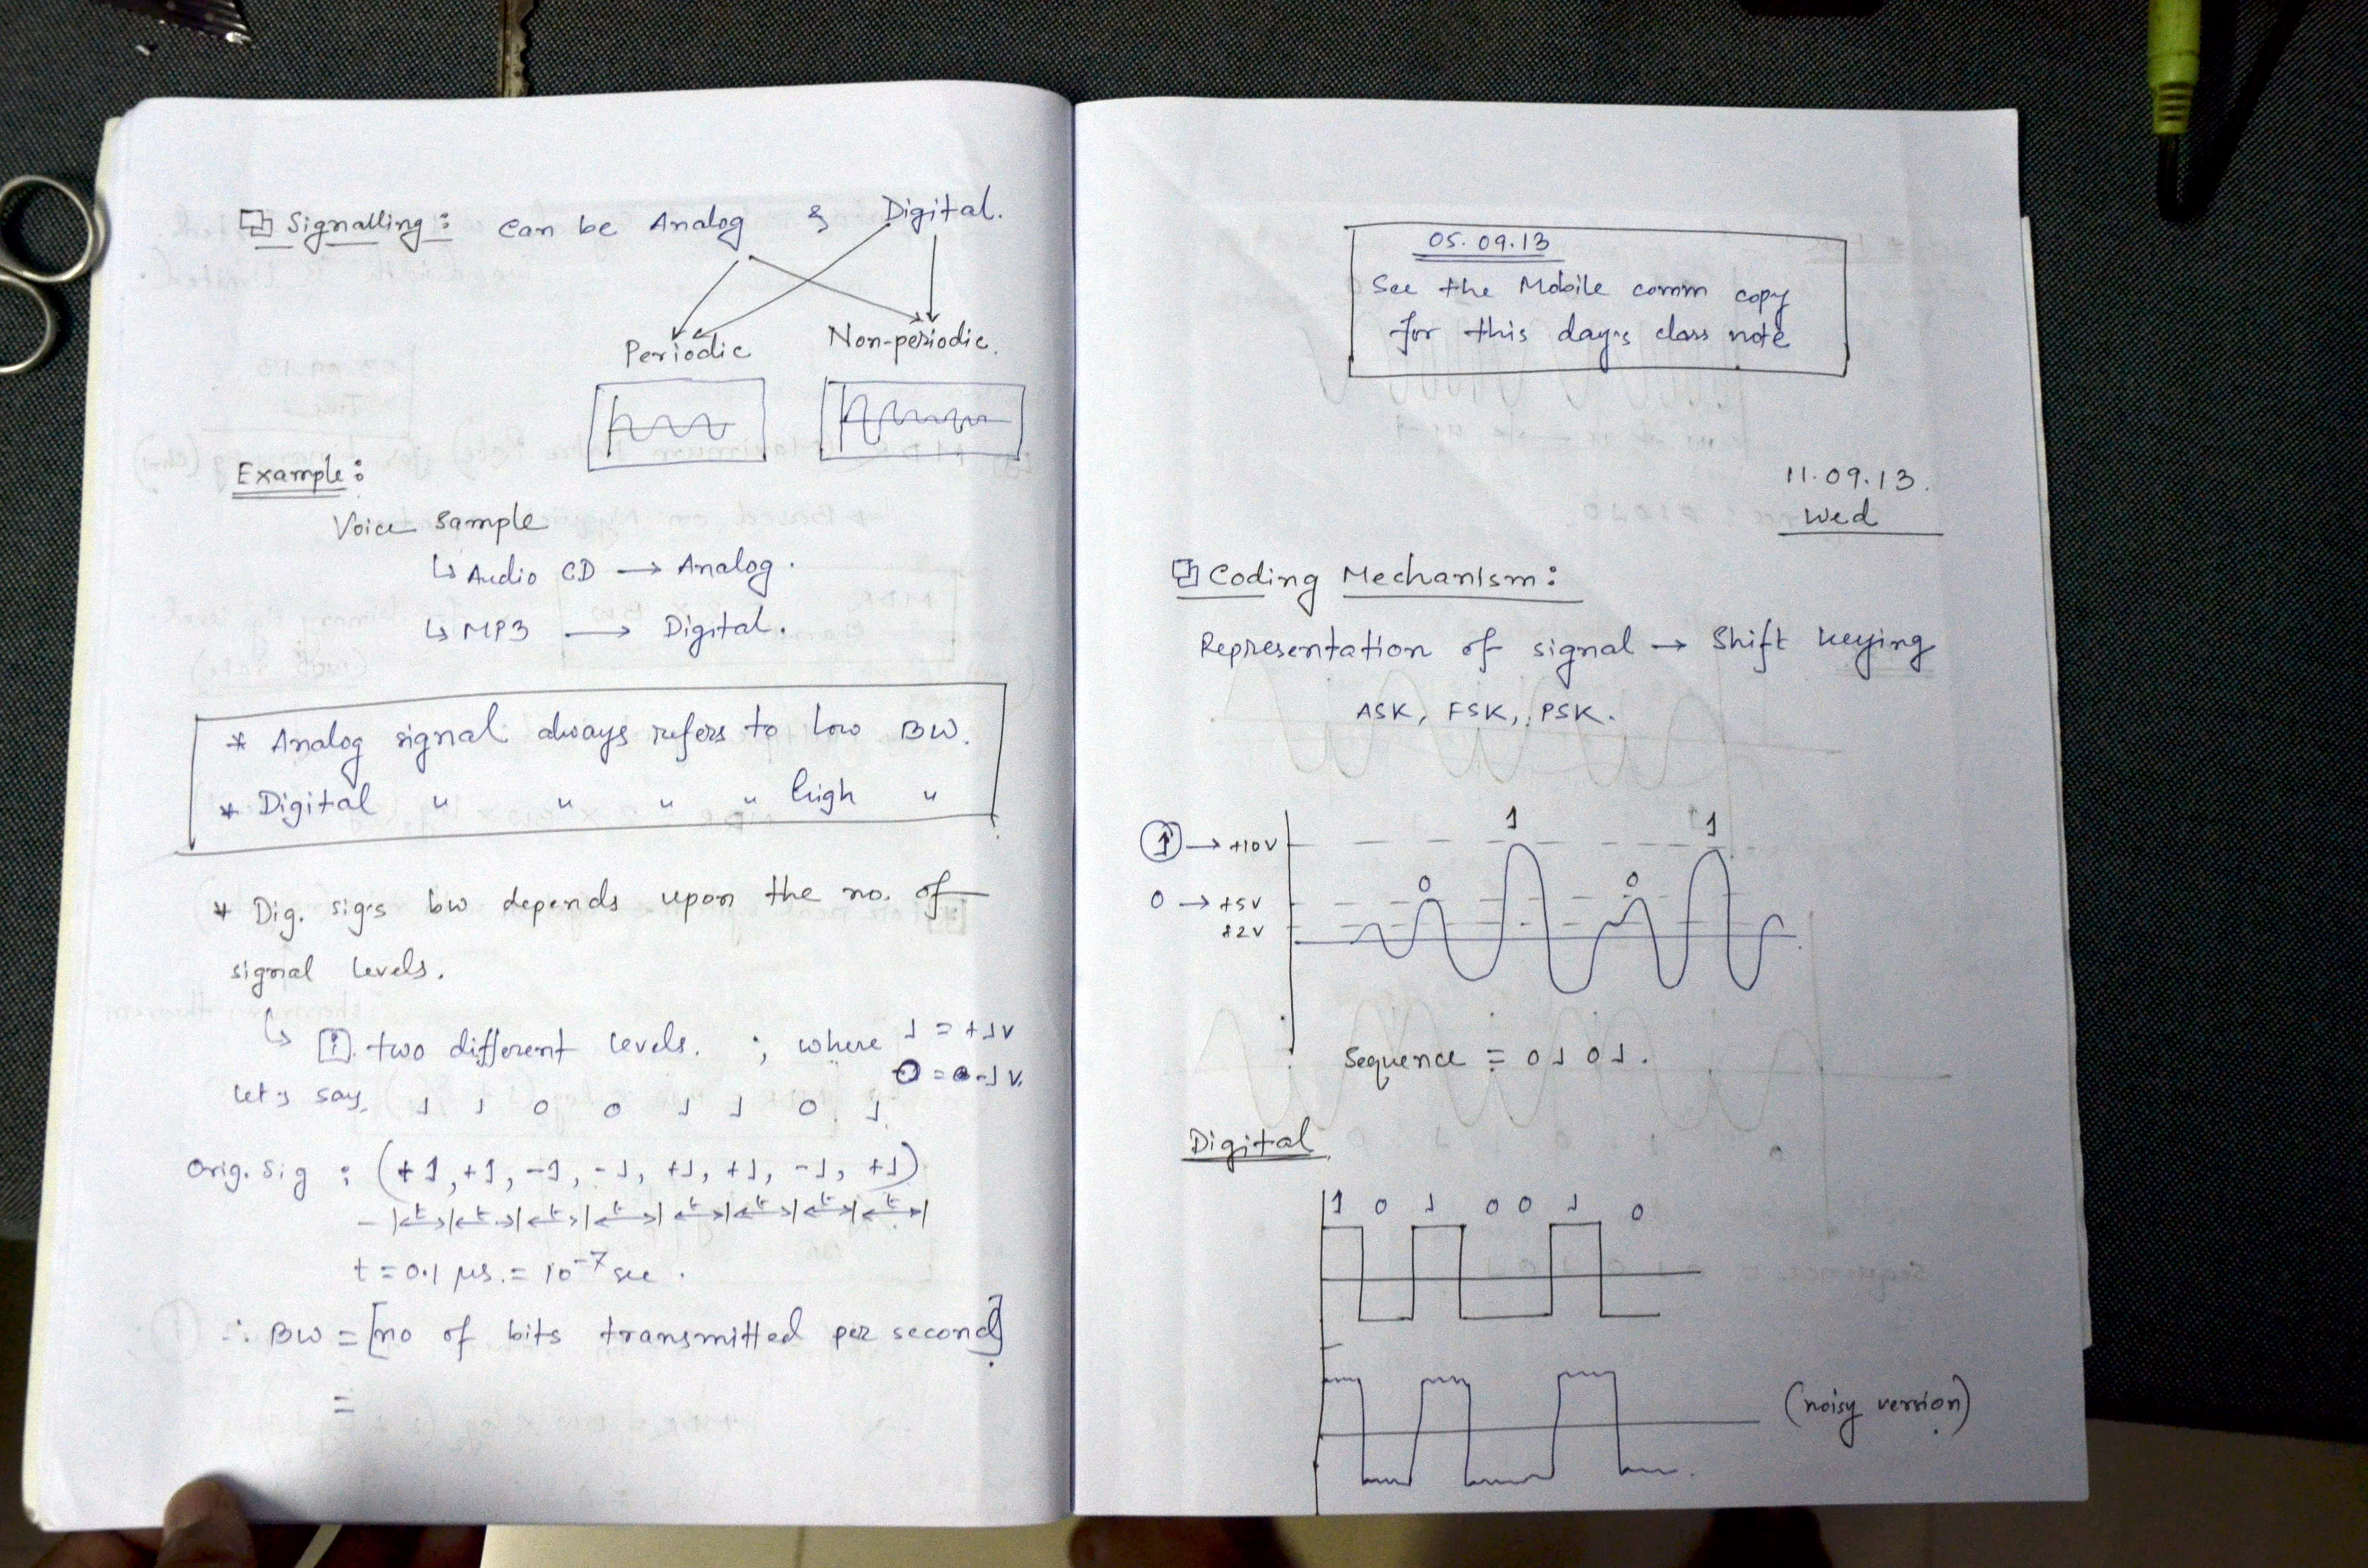 Signalling : can be Analog & Digital.
Periodic Non-periodic.
Example :
Voice Sample
↳ Audio CD → Analog.
↳ MP3 → Digital.
* Analog signal always refers to low BW.
* Digital " " " " high "
* Dig. sig's bw depends upon the no. of
signal levels.
↳ i. two different levels. ; where 1 = +1V
0 = -1V.
let's say, 1 1 0 0 1 1 0 1
Orig. Sig : (+1, +1, -1, -1, +1, +1, -1, +1)
t t t t t t t t
t = 0.1 μs. = 10⁻⁷ sec.
∴ BW = [no of bits transmitted per second].
=
05.09.13
See the Mobile comm copy
for this day's class note
11.09.13.
Wed
Coding Mechanism :
Representation of signal → Shift keying
ASK, FSK, PSK.
1 1
1 → +10V
0 0
0 → +5V
+2V
Sequence = 0 1 0 1.
Digital
1 0 1 0 0 1 0
(noisy version)